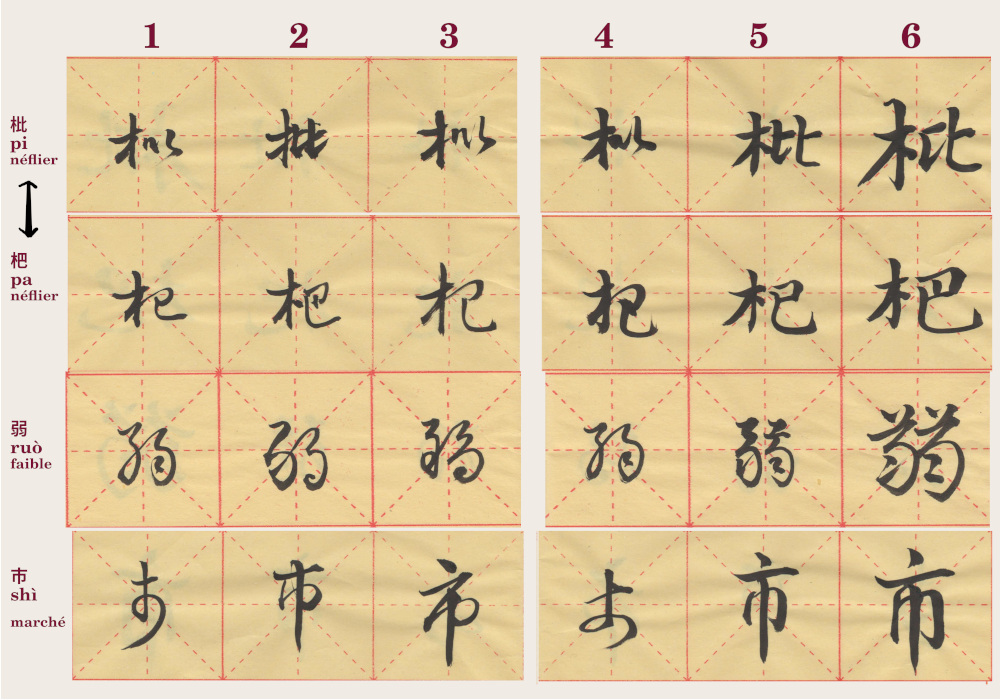 1 2 3 4 5 6
枇
pi
néflier
枇 枇 枇 枇 枇 枇
杷
pa
néflier
杷 杷 杷 杷 杷 杷
弱
ruò
faible
弱 弱 弱 弱 弱 弱
市
shì
marché
市 市 市 市 市 市